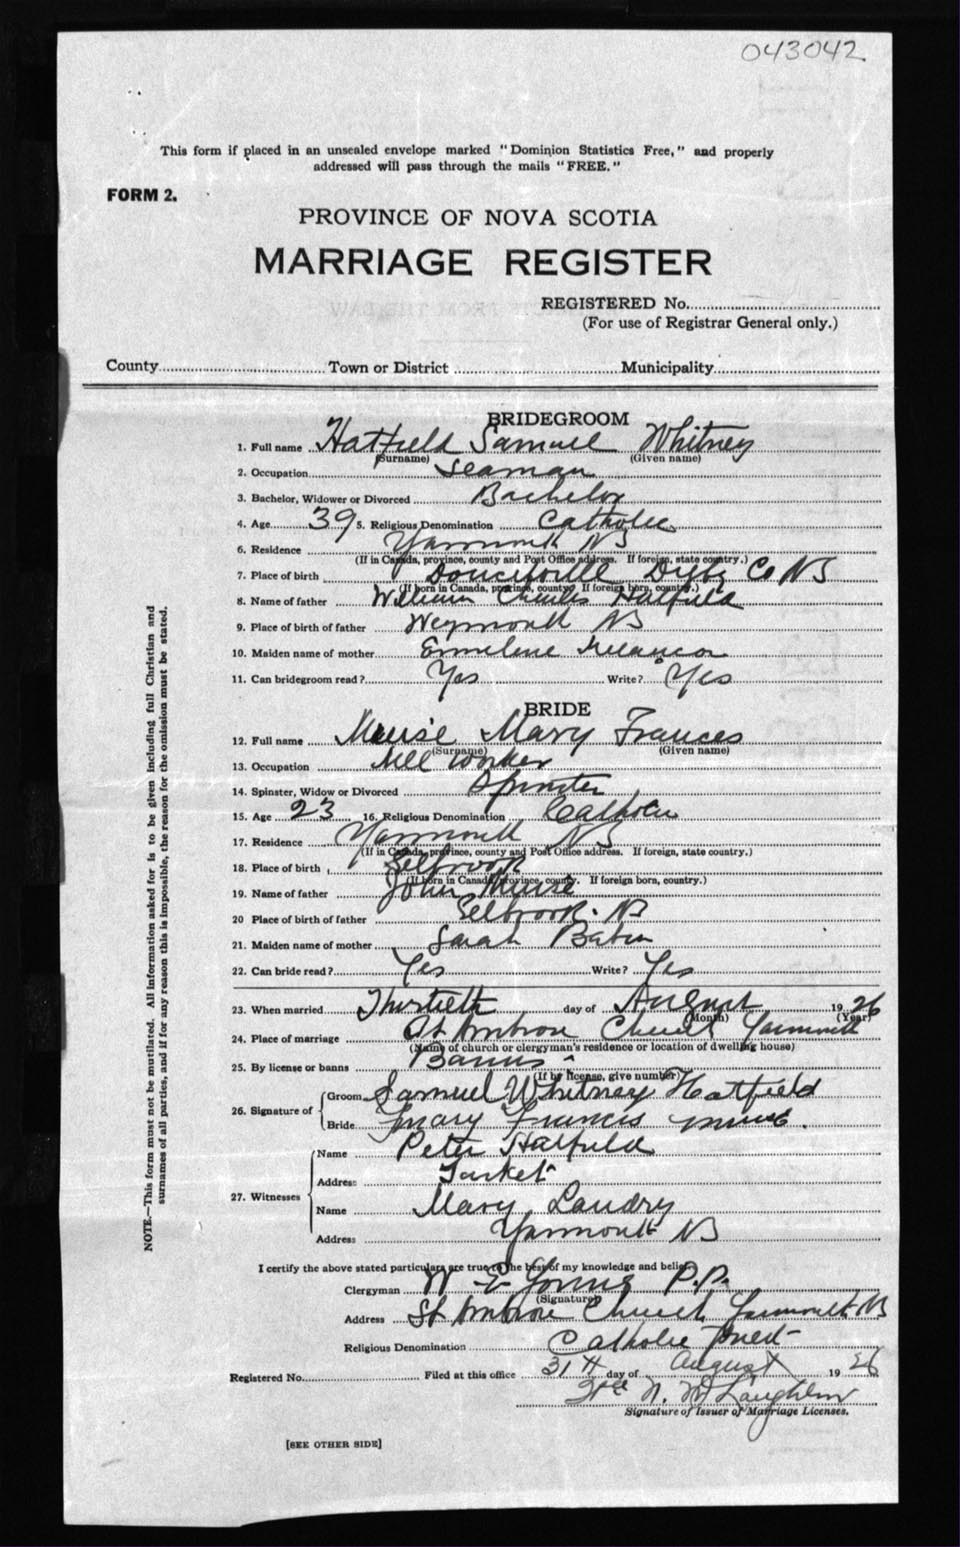 043042
This form if placed in an unsealed envelope marked "Dominion Statistics Free," and properly
addressed will pass through the mails "FREE."
FORM 2.
PROVINCE OF NOVA SCOTIA
MARRIAGE REGISTER
REGISTERED No.
(For use of Registrar General only.)
County Town or District Municipality
BRIDEGROOM
1. Full name Hatfield Samuel Whitney
(Surname) (Given name)
2. Occupation Seaman
3. Bachelor, Widower or Divorced Bachelor
4. Age 39 5. Religious Denomination Catholic
6. Residence Yarmouth NS
(If in Canada, province, county and Post Office address. If foreign, state country.)
7. Place of birth Doucetville Digby Co NS
(If born in Canada, province, county? If foreign born, country.)
8. Name of father William Charles Hatfield
9. Place of birth of father Weymouth NS
10. Maiden name of mother Emmelene Melancon
11. Can bridegroom read? Yes Write? Yes
BRIDE
12. Full name Muise Mary Frances
(Surname) (Given name)
13. Occupation Mill Worker
14. Spinster, Widow or Divorced Spinster
15. Age 23 16. Religious Denomination Catholic
17. Residence Yarmouth NS
(If in Canada, province, county and Post Office address. If foreign, state country.)
18. Place of birth Eelbrook
(If born in Canada, province, county. If foreign born, country.)
19. Name of father John Muise
20 Place of birth of father Eelbrook. NS
21. Maiden name of mother Sarah Babin
22. Can bride read? Yes Write? Yes
23. When married Thirtieth day of August 1926
(Month) (Year)
24. Place of marriage St Ambrose Church Yarmouth
(Name of church or clergyman's residence or location of dwelling house)
25. By license or banns Banns
(If by license, give number)
26. Signature of Groom Samuel Whitney Hatfield
Bride Mary Francis Muise.
27. Witnesses Name Peter Hatfield
Address Tusket
Name Mary Landry
Address Yarmouth NS
I certify the above stated particulars are true to the best of my knowledge and belief.
Clergyman W E Young P.P.
(Signature)
Address St Ambrose Church Yarmouth NS
Religious Denomination Catholic Priest
Registered No. Filed at this office 31st day of August 1926
N. McLaughlin
Signature of Issuer of Marriage Licenses.
[SEE OTHER SIDE]
NOTE.—This form must not be mutilated. All information asked for is to be given including full Christian and
surnames of all parties, and if for any reason this is impossible, the reason for the omission must be stated.